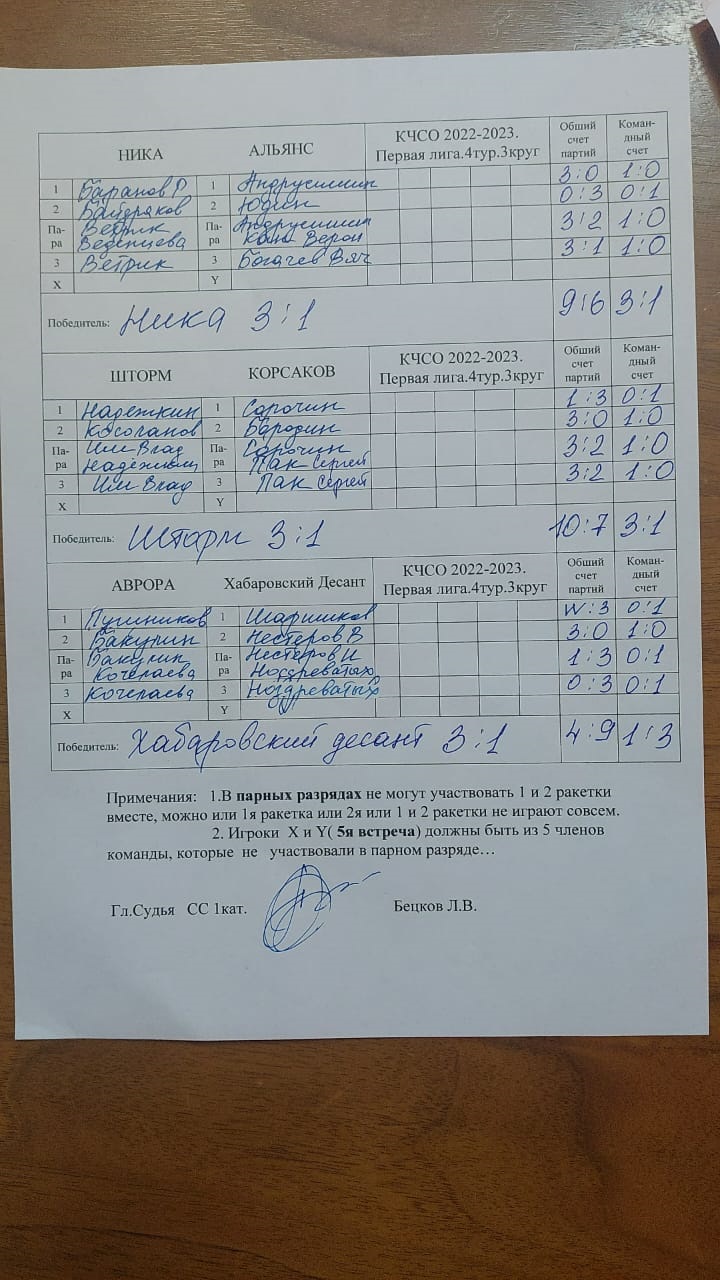 НИКА АЛЬЯНС КЧСО 2022-2023. Первая лига.4тур.3круг Общий счет партий Коман-дный счет
1 Баранов Р 1 Андрусишин 3:0 1:0
2 Байдраков 2 Юдин 0:3 0:1
Па-ра Ветрик Па-ра Андрусишин 3:2 1:0
Веденцева Ким Верон
3 Ветрик 3 Богачев Вяч 3:1 1:0
X Y
Победитель: Ника 3:1 9:6 3:1
ШТОРМ КОРСАКОВ КЧСО 2022-2023. Первая лига.4тур.3круг Общий счет партий Коман-дный счет
1 Надежкин 1 Сорочин 1:3 0:1
2 Косолапов 2 Бародин 3:0 1:0
Па-ра Им Влад Па-ра Сорочин 3:2 1:0
Надежкин Пак Сергей
3 Им Влад 3 Пак Сергей 3:2 1:0
X Y
Победитель: Шторм 3:1 10:7 3:1
АВРОРА Хабаровский Десант КЧСО 2022-2023. Первая лига.4тур.3круг Общий счет партий Коман-дный счет
1 Пушников 1 Шаришков W:3 0:1
2 Бакулин 2 Нестеров В 3:0 1:0
Па-ра Бакулин Па-ра Нестеров И 1:3 0:1
Кочелаева Ноздреватых
3 Кочелаева 3 Ноздреватых 0:3 0:1
X Y
Победитель: Хабаровский десант 3:1 4:9 1:3
Примечания: 1.В парных разрядах не могут участвовать 1 и 2 ракетки
вместе, можно или 1я ракетка или 2я или 1 и 2 ракетки не играют совсем.
2. Игроки X и Y( 5я встреча) должны быть из 5 членов
команды, которые не участвовали в парном разряде…
Гл.Судья СС 1кат. Бецков Л.В.